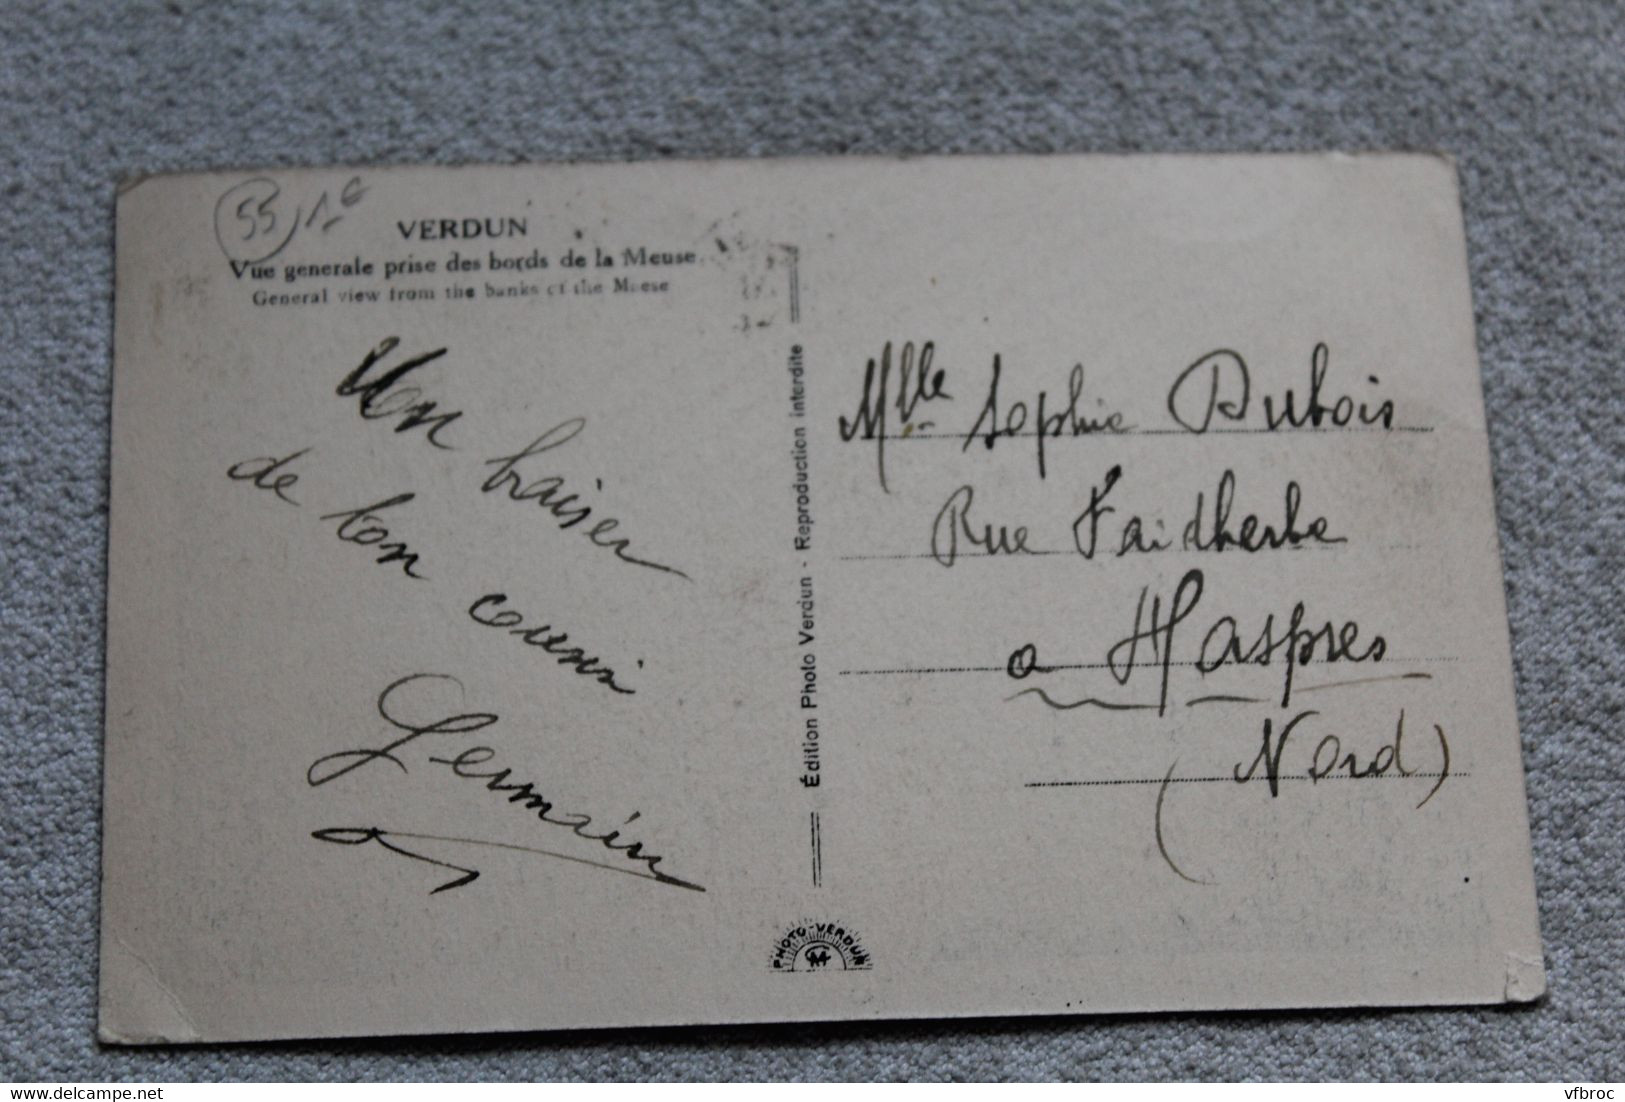 55 1€
VERDUN
Vue generale prise des bords de la Meuse
General view from the banks of the Meese
Un baiser
de ton cousin
Germain
Édition Photo Verdun - Reproduction interdite
PHOTO-VERDUN
Mlle Sophie Dubois
Rue Faidherbe
a Haspres
(Nord)
delcampe.net
vfbroc